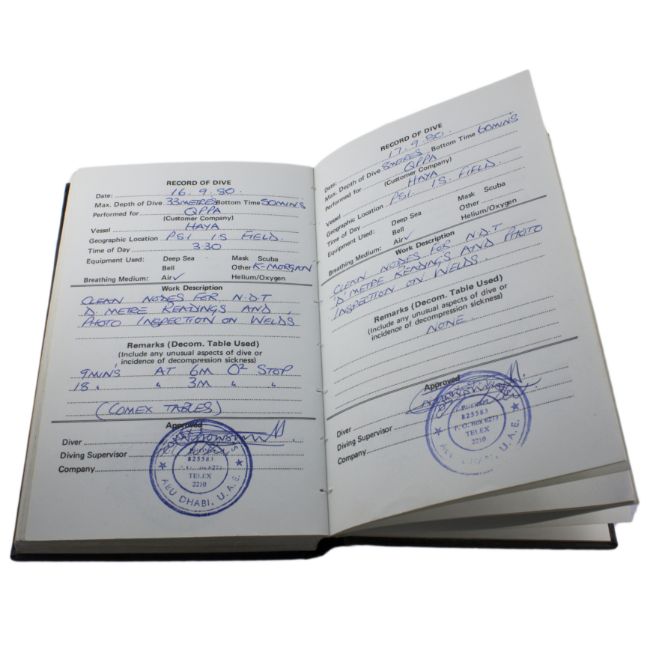 RECORD OF DIVE
Date: 16.9.80.
Max. Depth of Dive 33 METRES Bottom Time 50MINS
Performed for QPPA
(Customer Company)
Vessel HAYA
Geographic Location PSI IS FIELD.
Time of Day 330
Equipment Used: Deep Sea Mask Scuba
Bell Other K-MORGAN
Breathing Medium: Air✓ Helium/Oxygen
Work Description
CLEAN NODES FOR N.D.T
D METRE READINGS AND
PHOTO INSPECTION ON WELDS
Remarks (Decom. Table Used)
(Include any unusual aspects of dive or
incidence of decompression sickness)
9MINS AT 6M O2 STOP
18 " " 3M " "
(COMEX TABLES)
Approved
Diver
Diving Supervisor
Company
825583
TELEX
2210
ABU DHABI, U.A.E.
RECORD OF DIVE
Date: 17.9.80.
Max. Depth of Dive METRES Bottom Time 60MINS
Performed for QPPA
(Customer Company)
Vessel HAYA
Geographic Location PSI IS. FIELD.
Time of Day
Equipment Used: Deep Sea Mask Scuba
Bell Other
Breathing Medium: Air✓ Helium/Oxygen
Work Description
CLEAN NODES FOR N.D.T
D METRE READINGS AND PHOTO
INSPECTION ON WELDS.
Remarks (Decom. Table Used)
(Include any unusual aspects of dive or
incidence of decompression sickness)
NONE.
Approved
Diver
Diving Supervisor
Company
825583
P. O. Box 6273
TELEX
2210
U.A.E.